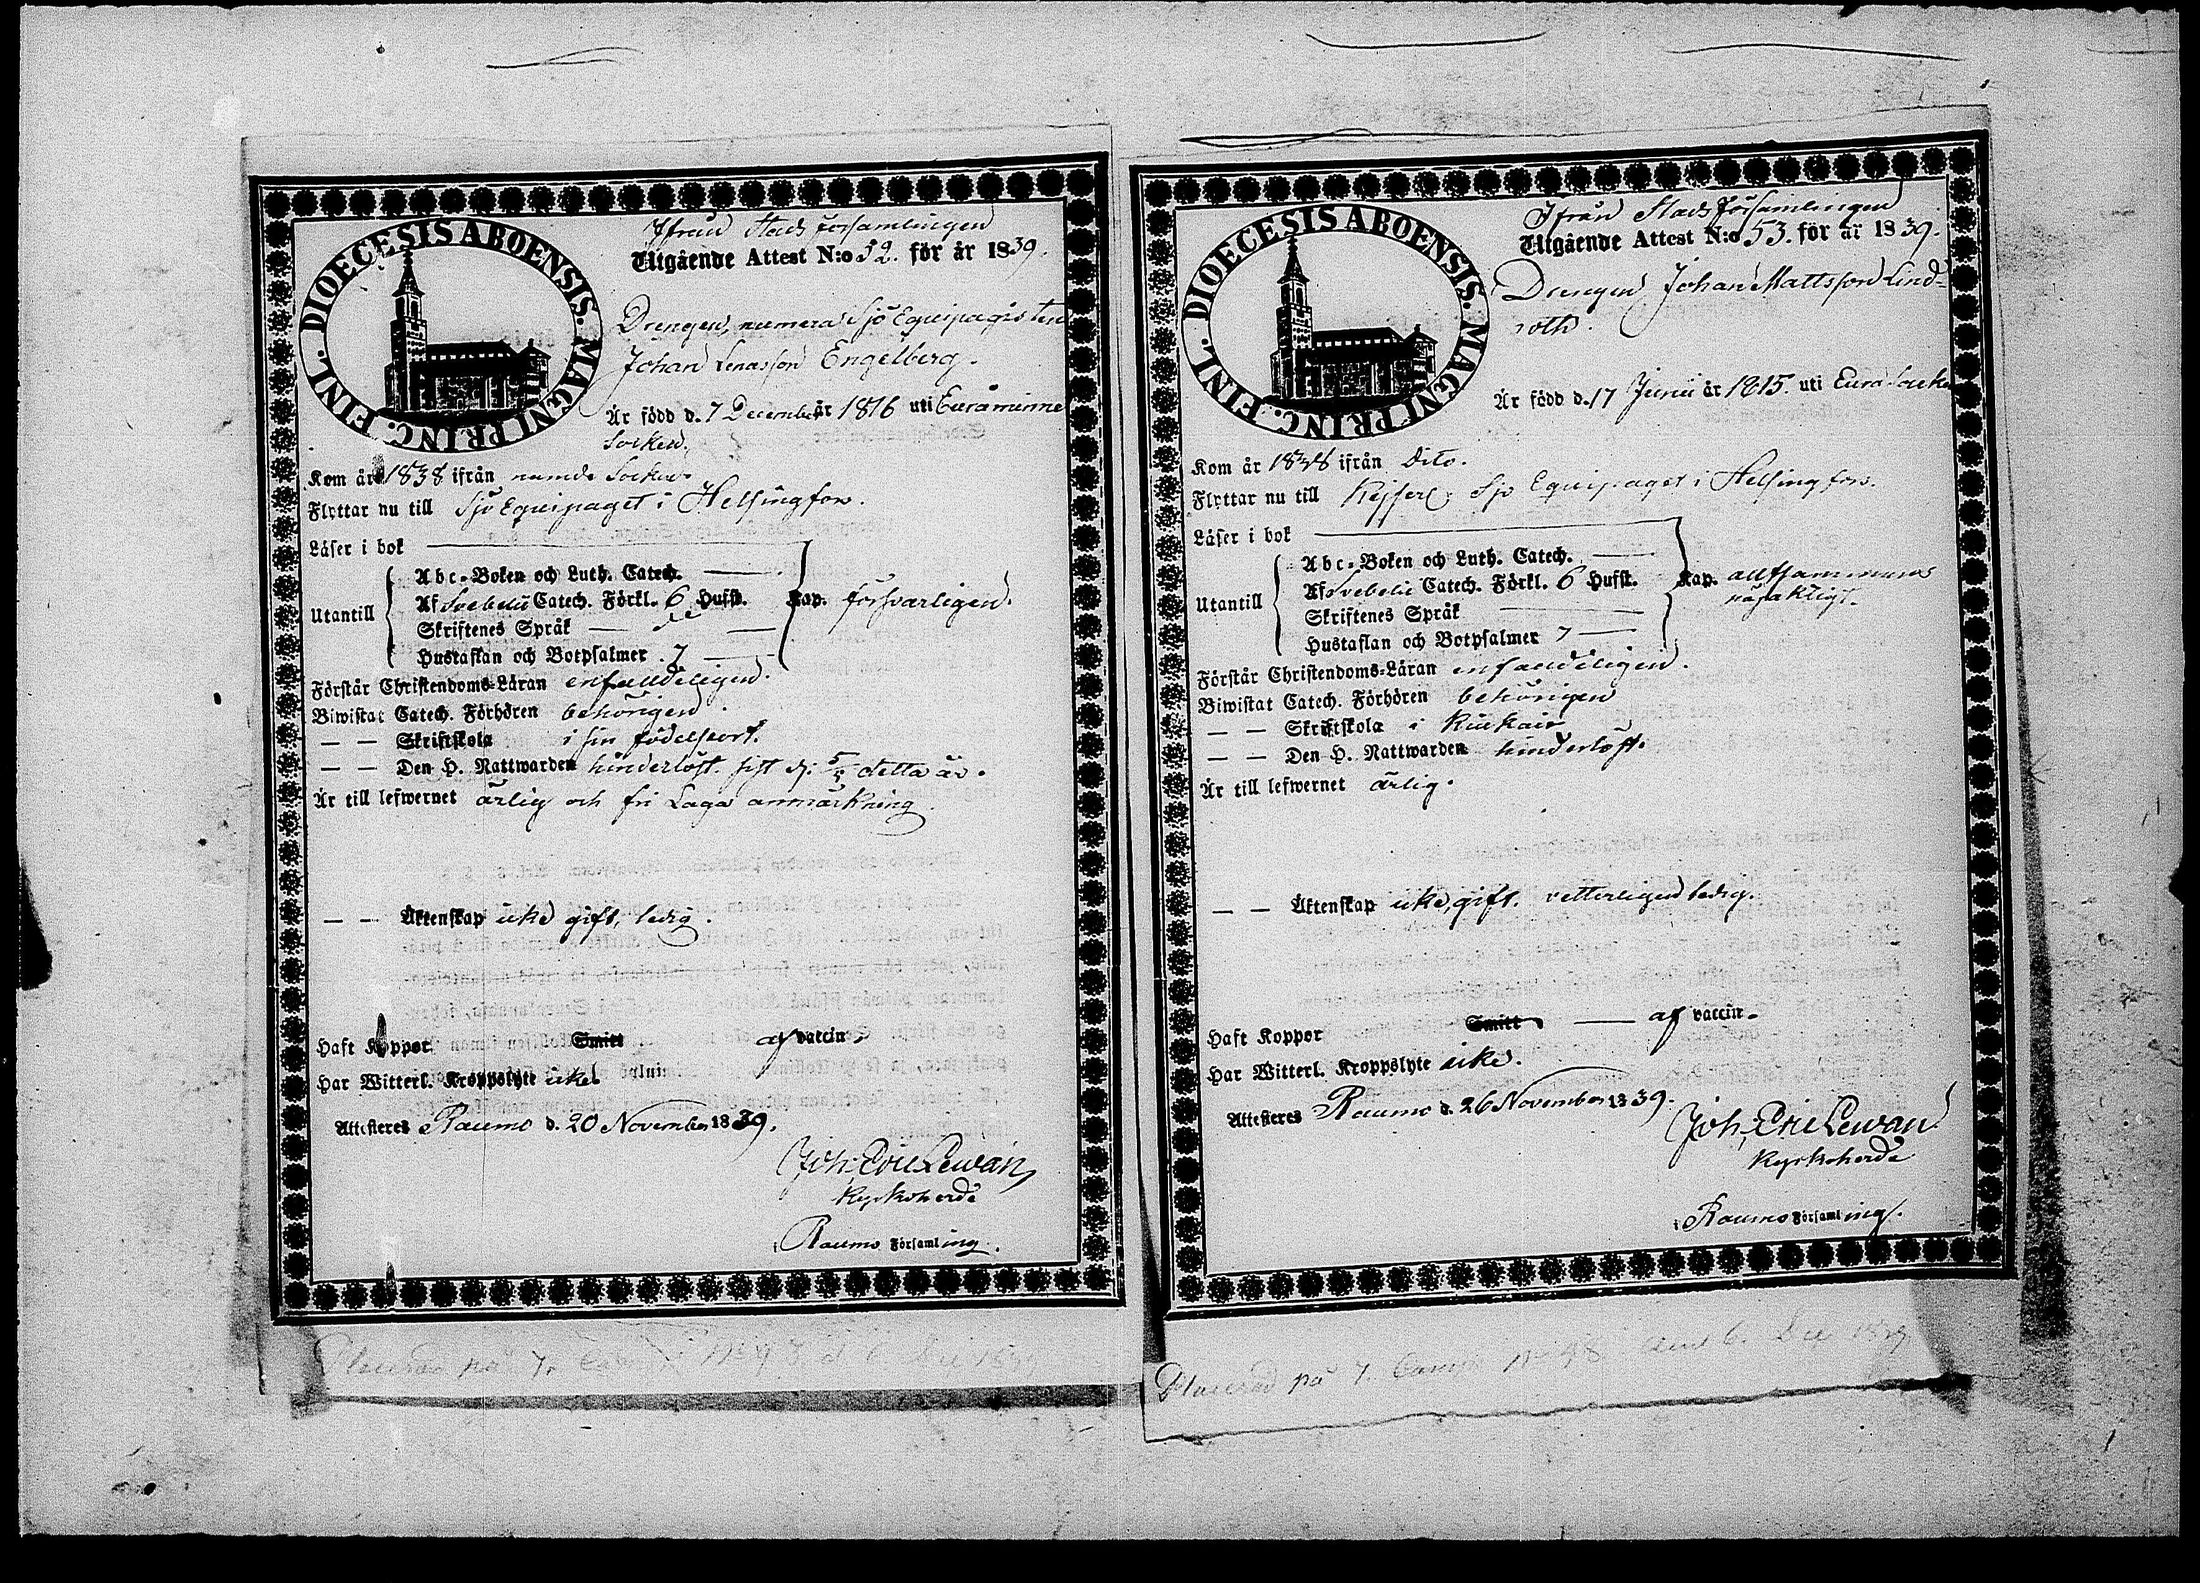 DIOECESIS ABOENSIS. MAGNI PRINC. FINL.
Ifrån Stads församlingen
Utgående Attest N:o 52. för år 1839.
Drengen, numera Sjö Equipagisten
Johan Enasson Engelberg.
Är född d. 7 December år 1816 uti Euraminne
Socken.
Kom år 1838 ifrån nämde Socken.
Flyttar nu till Sjö Equipaget i Helsingfors.
Läser i bok
Utantill
Abc-Boken och Luth. Catech.
Af Svebelii Catech. Förkl. 6 Hufst. Kap. försvarligen.
Skriftenes Språk
Hustaflan och Botpsalmer 7
Förstår Christendoms-Läran enfalldeligen.
Biwistat Catech. Förhören behörigen.
— — Skriftskola i sin födelseort.
— — Den H. Nattwarden hinderlöst. sist d. 5/5 detta år.
Är till lefwernet ärlig och fri Laga anmärkning.
— — Äktenskap icke gift, ledig.
Haft Koppor Smitt af vaccin.
Har Witterl. Kroppslyte icke.
Attesteres Raumo d. 20 November 1839.
Joh. Eric Lewan
Kyrkoherde
i Raumo Församling.
Placerad på 7. Comp. N:o 97 d. 6 Dec 1839
DIOECESIS ABOENSIS. MAGNI PRINC. FINL.
Ifrån Stads församlingen
Utgående Attest N:o 53. för år 1839.
Drengen Johan Mattsson Lind-
roth.
Är född d. 17 Junii år 1815. uti Eura Socken
Kom år 1838 ifrån Dito.
Flyttar nu till Kejserl. Sjö Equipaget i Helsingfors.
Läser i bok
Utantill
Abc-Boken och Luth. Catech.
Af Svebelii Catech. Förkl. 6 Hufst. Kap. alltsammans
någaktigt.
Skriftenes Språk
Hustaflan och Botpsalmer 7
Förstår Christendoms-Läran enfalldeligen.
Biwistat Catech. Förhören behörigen
— — Skriftskola i Kiukais
— — Den H. Nattwarden hinderlöst.
Är till lefwernet ärlig.
— — Äktenskap icke, gift. vetterligen ledig.
Haft Koppor Smitt — af vaccin.
Har Witterl. Kroppslyte icke.
Attesteres Raumo d. 26 November 1839.
Joh. Eric Lewan
Kyrkoherde
i Raumo Församling.
Placerad på 7. Comp. N:o 98 den 6. Dec 1839